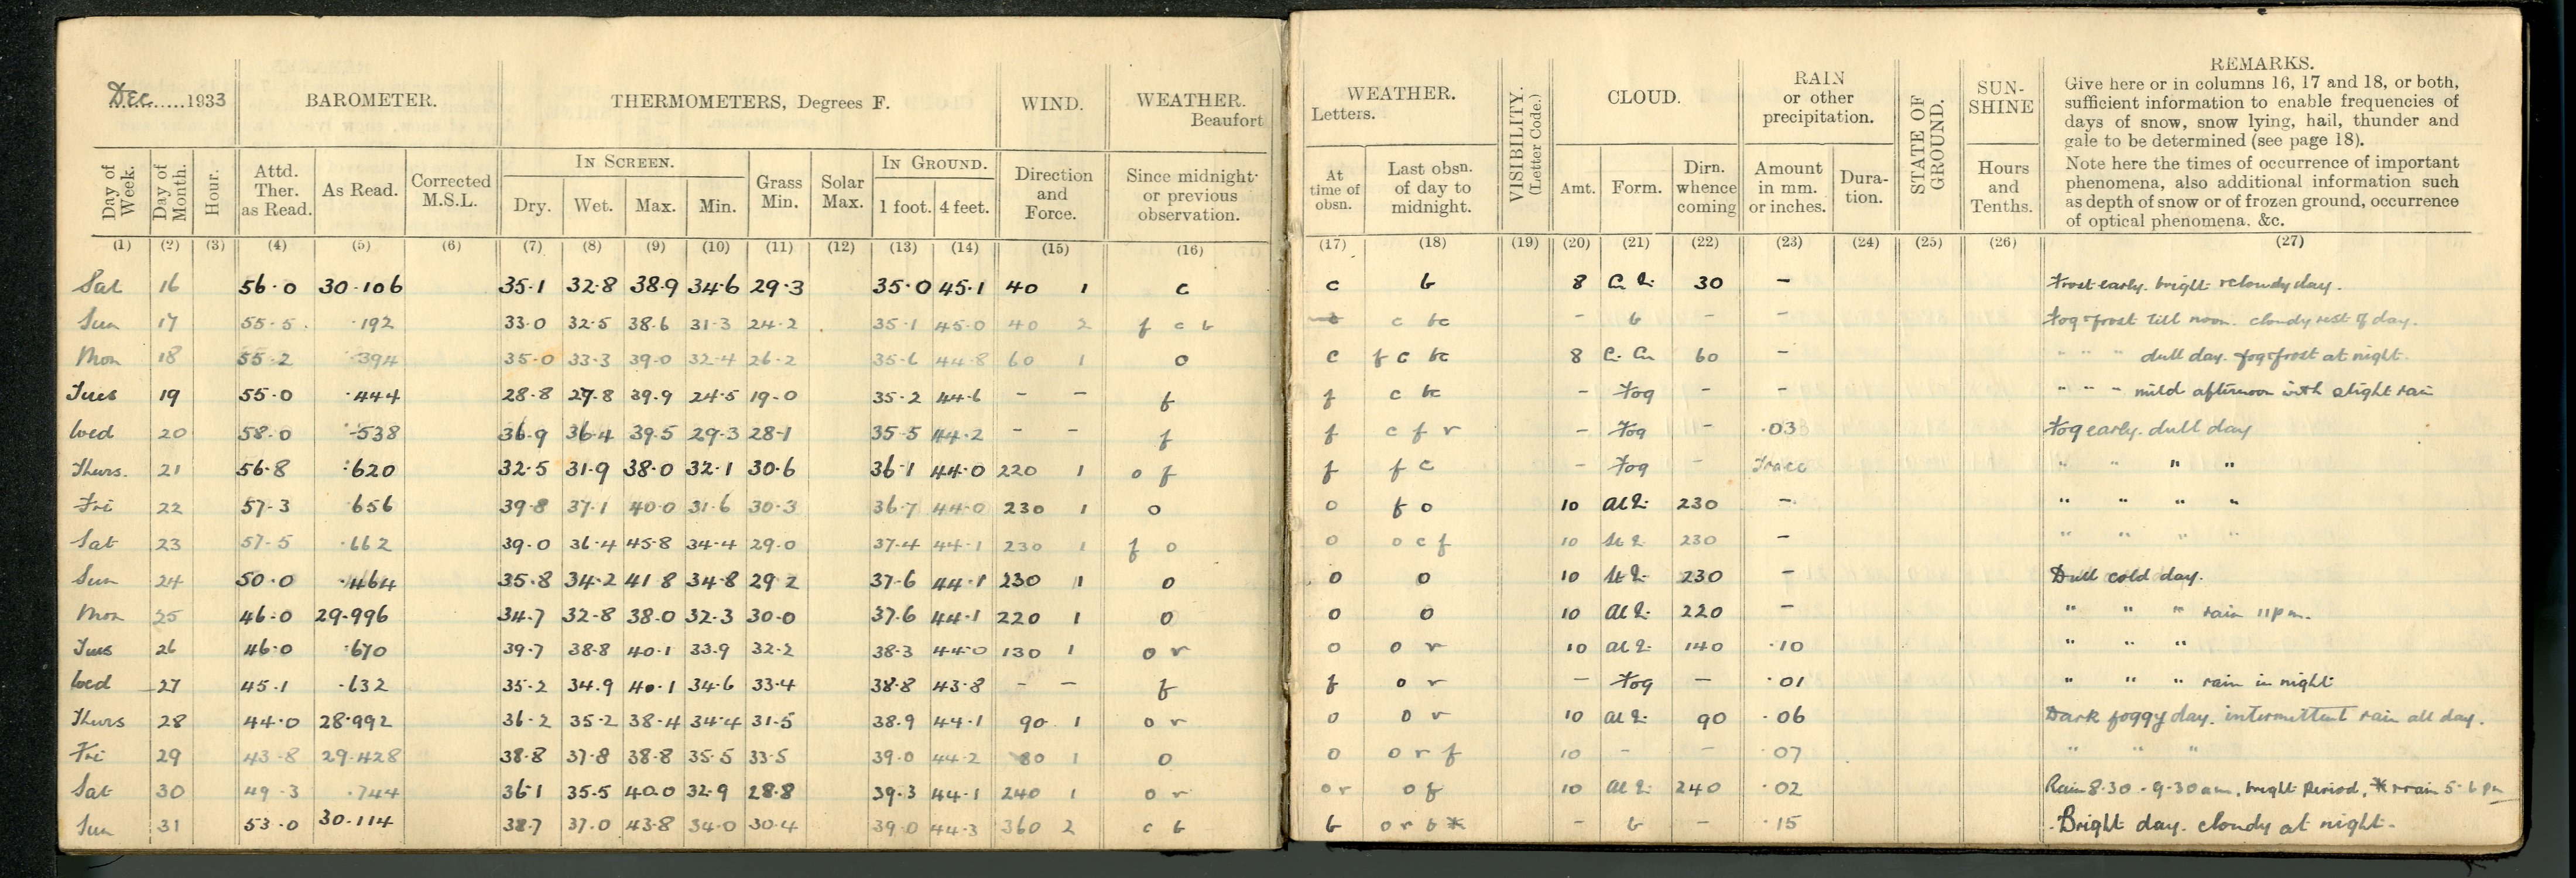 Dec 1933 BAROMETER. THERMOMETERS, Degrees F. WIND. WEATHER. Beaufort
Day of Week. Day of Month. Hour. Attd. Ther. as Read. As Read. Corrected M.S.L. IN SCREEN. Dry. Wet. Max. Min. Grass Min. Solar Max. IN GROUND. 1 foot. 4 feet. Direction and Force. Since midnight or previous observation.
(1) (2) (3) (4) (5) (6) (7) (8) (9) (10) (11) (12) (13) (14) (15) (16)
Sat 16 56·0 30·106 35·1 32·8 38·9 34·6 29·3 35·0 45·1 40 1 c
Sun 17 55·5 ·192 33·0 32·5 38·6 31·3 24·2 35·1 45·0 40 2 f c b
Mon 18 55·2 ·394 35·0 33·3 39·0 32·4 26·2 35·6 44·8 60 1 o
Tues 19 55·0 ·444 28·8 27·8 39·9 24·5 19·0 35·2 44·6 - - f
Wed 20 58·0 ·538 36·9 36·4 39·5 29·3 28·1 35·5 44·2 - - f
Thurs. 21 56·8 ·620 32·5 31·9 38·0 32·1 30·6 36·1 44·0 220 1 o f
Fri 22 57·3 ·656 39·8 37·1 40·0 31·6 30·3 36·7 44·0 230 1 o
Sat 23 57·5 ·662 39·0 36·4 45·8 34·4 29·0 37·4 44·1 230 1 f o
Sun 24 50·0 ·464 35·8 34·2 41·8 34·8 29·2 37·6 44·1 230 1 o
Mon 25 46·0 29·996 34·7 32·8 38·0 32·3 30·0 37·6 44·1 220 1 o
Tues 26 46·0 ·670 39·7 38·8 40·1 33·9 32·2 38·3 44·0 130 1 o r
Wed 27 45·1 ·632 35·2 34·9 40·1 34·6 33·4 38·8 43·8 - - f
Thurs 28 44·0 28·992 36·2 35·2 38·4 34·4 31·5 38·9 44·1 90 1 o r
Fri 29 43·8 29·428 38·8 37·8 38·8 35·5 33·5 39·0 44·2 80 1 o
Sat 30 49·3 ·744 36·1 35·5 40·0 32·9 28·8 39·3 44·1 240 1 o r
Sun 31 53·0 30·114 38·7 37·0 43·8 34·0 30·4 39·0 44·3 360 2 c b
WEATHER. Letters. VISIBILITY. (Letter Code.) CLOUD. RAIN or other precipitation. STATE OF GROUND. SUN-SHINE REMARKS.
Give here or in columns 16, 17 and 18, or both,
sufficient information to enable frequencies of
days of snow, snow lying, hail, thunder and
gale to be determined (see page 18).
Note here the times of occurrence of important
phenomena, also additional information such
as depth of snow or of frozen ground, occurrence
of optical phenomena. &c.
At time of obsn. Last obsn. of day to midnight. Amt. Form. Dirn. whence coming Amount in mm. or inches. Dura-tion. Hours and Tenths.
(17) (18) (19) (20) (21) (22) (23) (24) (25) (26) (27)
c b 8 30 - Frost early. bright & cloudy day.
c bc - b - - Fog & frost till noon. cloudy rest of day.
c f c bc 8 60 - " " " dull day. fog & frost at night.
f c bc - Fog - - " " " mild afternoon with slight rain
f c f r - Fog - ·03 Fog early. dull day
f f c - Fog - Trace " " " "
o f o 10 230 - " " " "
o o c f 10 230 - " " " "
o o 10 230 - Dull cold day.
o o 10 220 - " " " rain 11pm.
o o r 10 140 ·10 " " "
f o r - Fog - ·01 " " " rain in night
o o r 10 90 ·06 Dark foggy day. intermittent rain all day.
o o r f 10 - - ·07 " " "
o r o f 10 240 ·02 Rain 8·30 - 9·30 am, bright period, * & rain 5-6 pm
b o r b * - b - ·15 Bright day. cloudy at night.